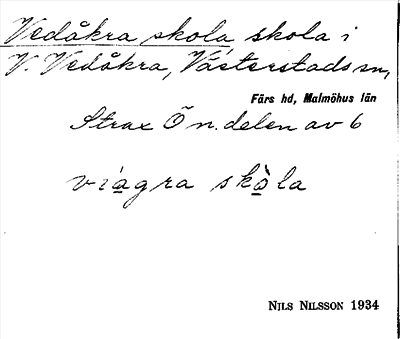 Vedåkra skola skola i
V. Vedåkra, Västerstads sn,
Färs hd, Malmöhus län
Strax Ö n. delen av 6
viagra skòla
NILS NILSSON 1934